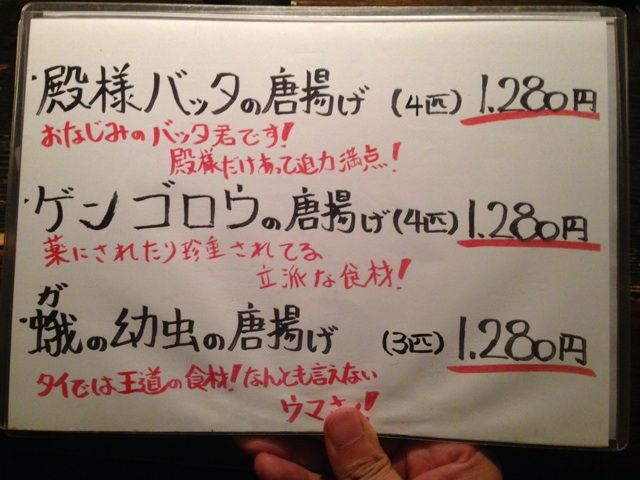 ・殿様バッタの唐揚げ (4匹) 1.280円
おなじみのバッタ君です!
殿様だけあって迫力満点!
・ゲンゴロウの唐揚げ(4匹) 1.280円
薬にされたり珍重されてる
立派な食材!
ガ
・蛾の幼虫の唐揚げ (3匹) 1.280円
タイでは王道の食材!なんとも言えない
ウマ!!